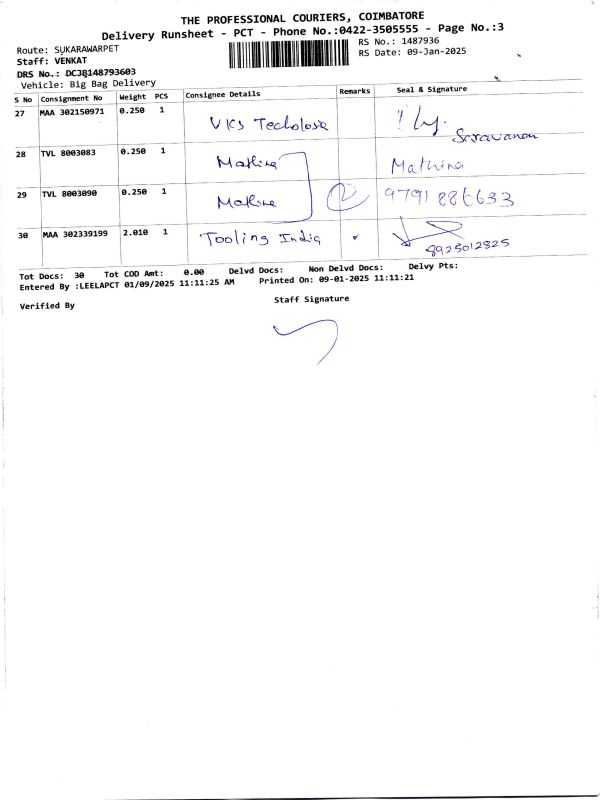 THE PROFESSIONAL COURIERS, COIMBATORE
Delivery Runsheet - PCT - Phone No.:0422-3505555 - Page No.:3
Route: SUKARAWARPET
RS No.: 1487936
Staff: VENKAT
RS Date: 09-Jan-2025
DRS No.: DCJB148793603
Vehicle: Big Bag Delivery
S No Consignment No Weight PCS Consignee Details Remarks Seal & Signature
27 MAA 302150971 0.250 1 VKS Techolosie
Saravanan
28 TVL 8003083 0.250 1 Mathina Mathina
29 TVL 8003090 0.250 1 Mathina 2 9791886633
30 MAA 302339199 2.010 1 Tooling India 8925012825
Tot Docs: 30 Tot COD Amt: 0.00 Delvd Docs: Non Delvd Docs: Delvy Pts:
Entered By :LEELAPCT 01/09/2025 11:11:25 AM Printed On: 09-01-2025 11:11:21
Verified By Staff Signature